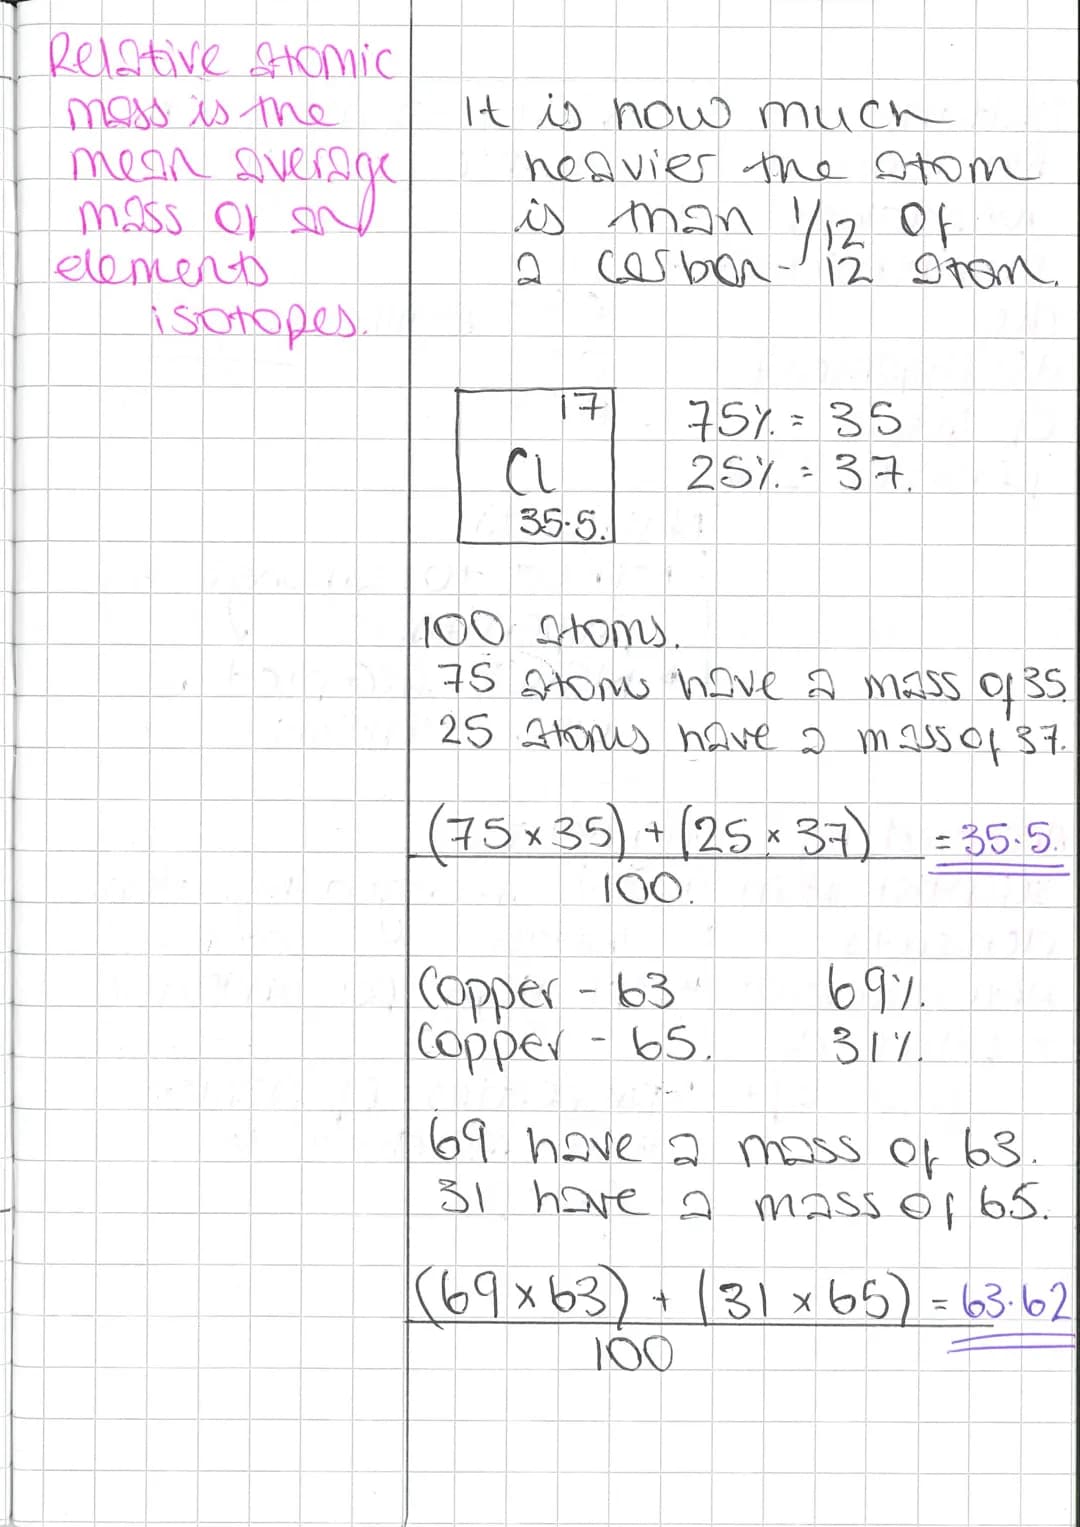 Relative atomic
mass is the
mean average
mass of an
elements
isotopes.
It is how much
heavier the atom
is than 1/12 of
a carbon-12 atom.
17
Cl
35.5.
75% = 35
25% = 37.
100 atoms.
75 atoms have a mass of 35.
25 atoms have a mass of 37.
(75 × 35) + (25 × 37) = 35.5.
100.
Copper - 63 69%.
Copper - 65. 31%.
69 have a mass of 63.
31 have a mass of 65.
(69 × 63) + (31 × 65) = 63.62
100